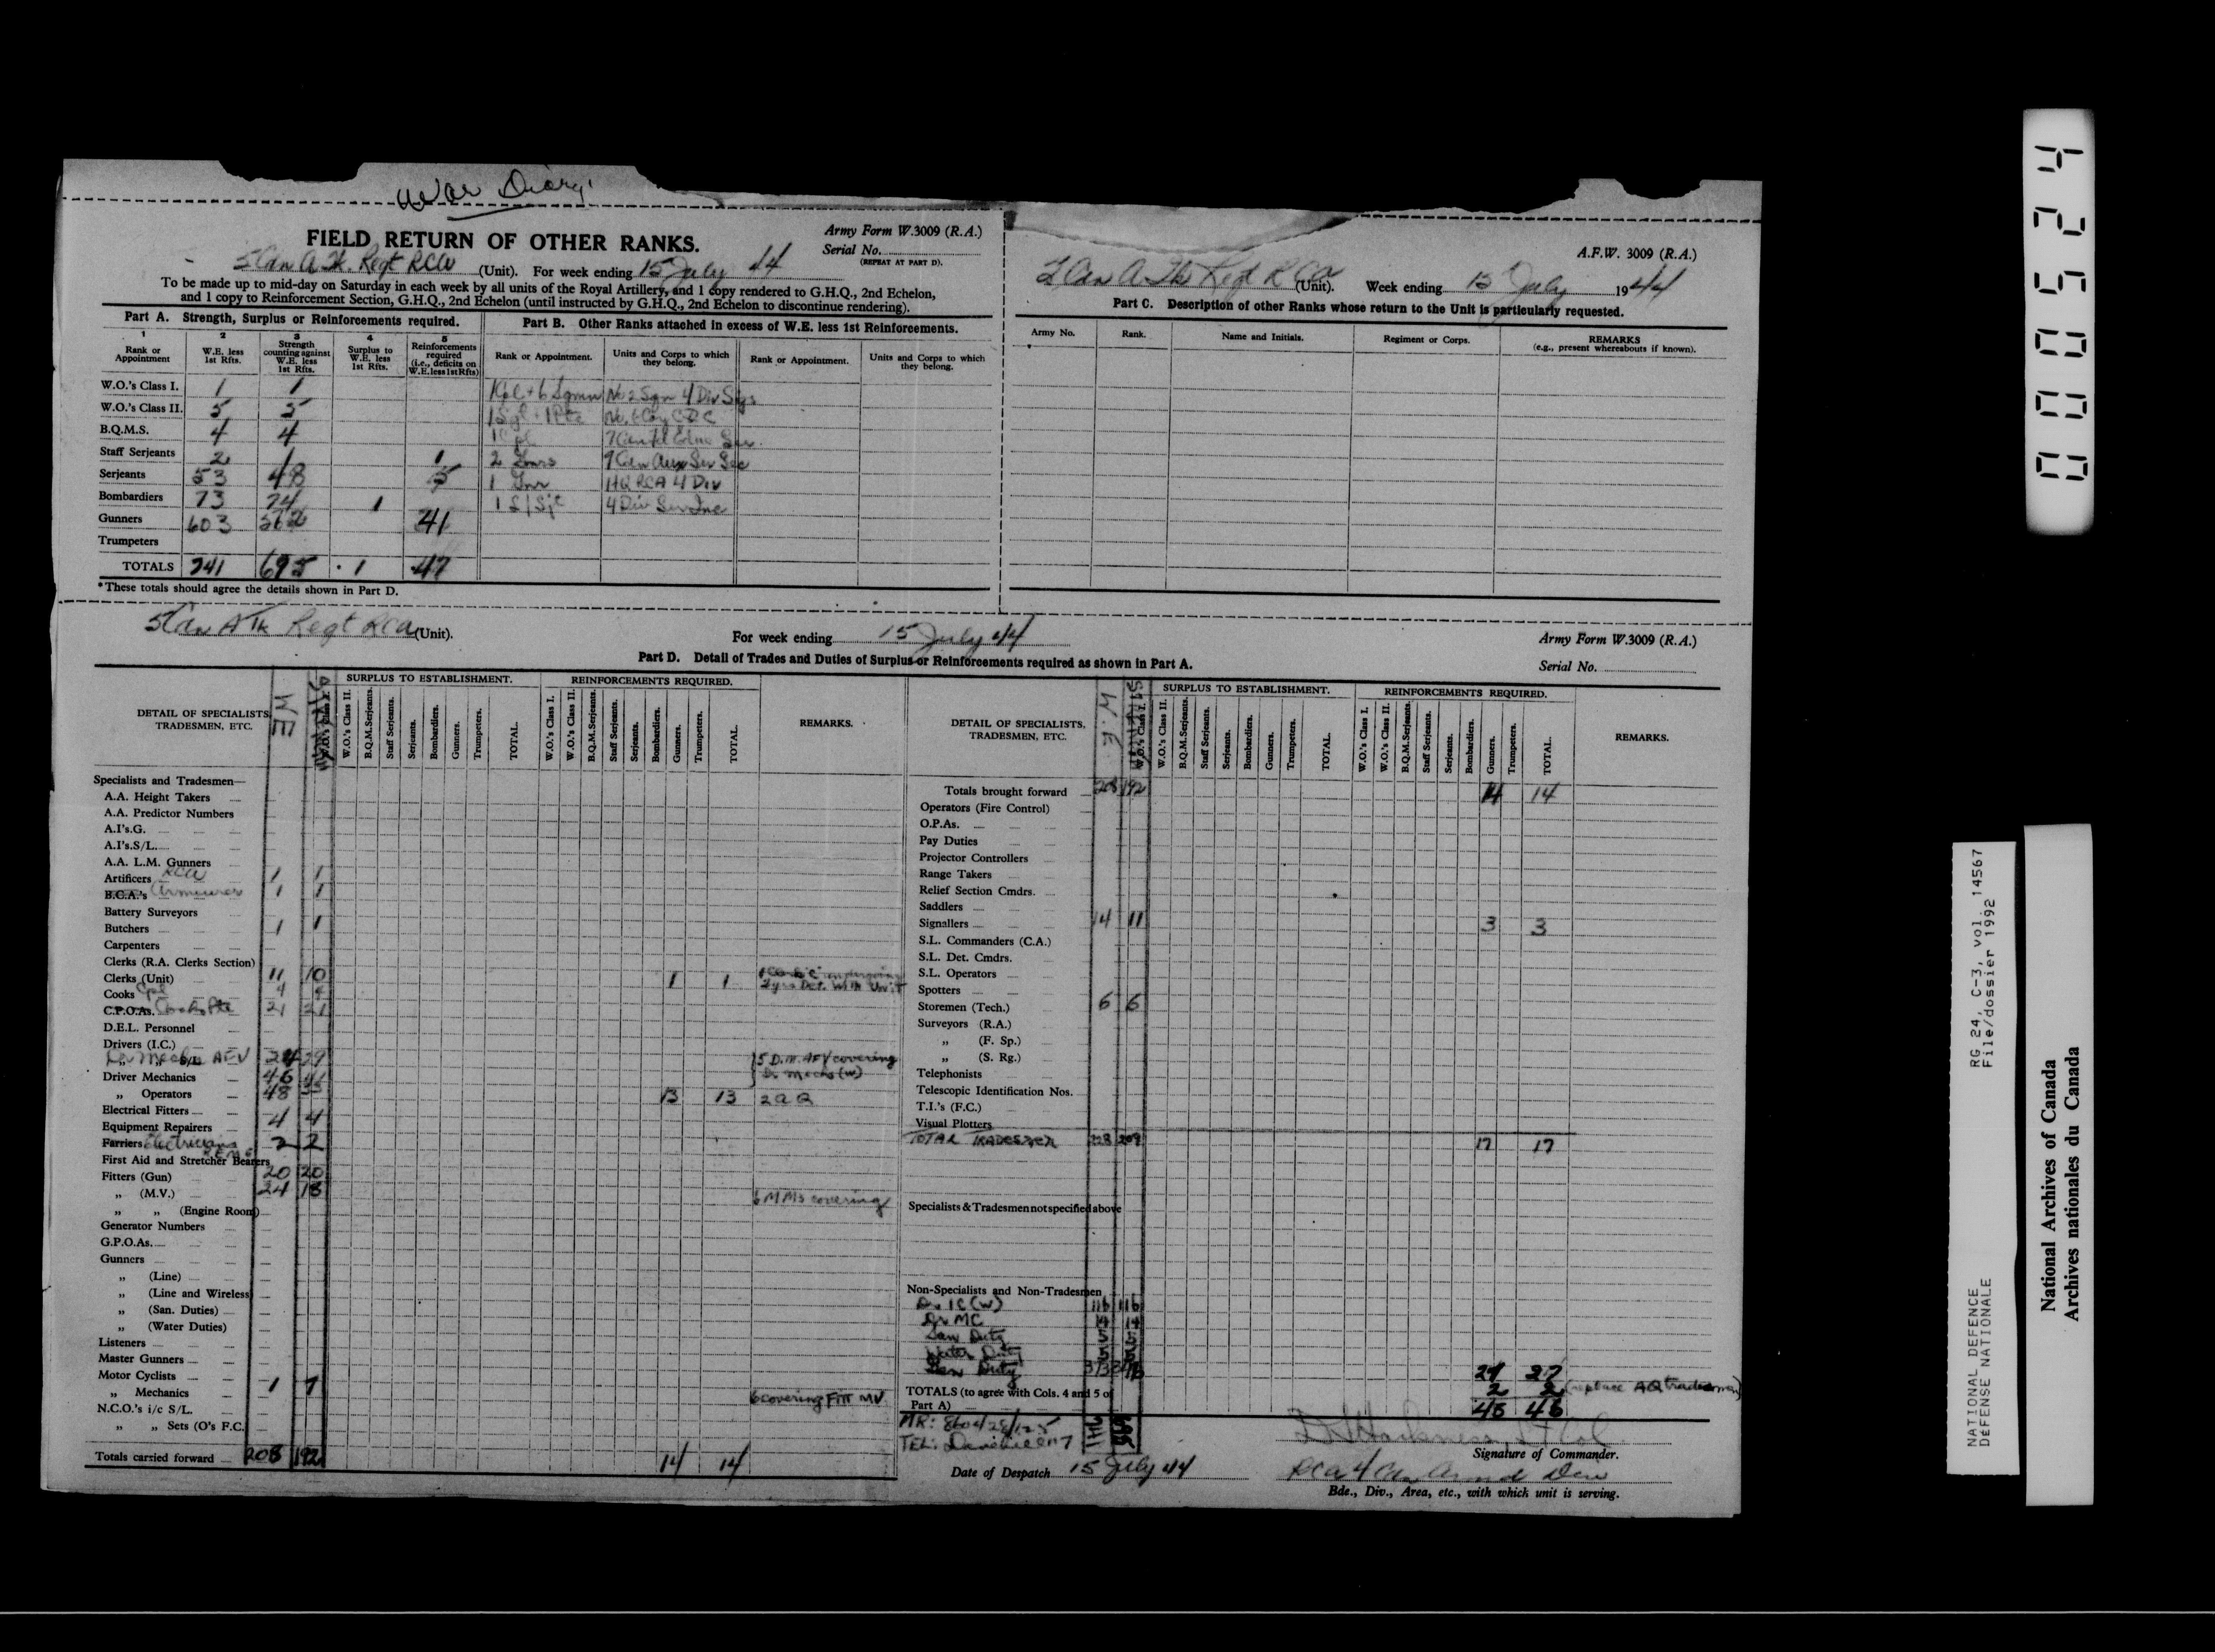 War Diary
FIELD RETURN OF OTHER RANKS.
Army Form W.3009 (R.A.)
Serial No.
(REPEAT AT PART D).
5 Can A Tk. Regt RCA (Unit). For week ending 15 July 44
To be made up to mid-day on Saturday in each week by all units of the Royal Artillery, and 1 copy rendered to G.H.Q., 2nd Echelon,
and 1 copy to Reinforcement Section, G.H.Q., 2nd Echelon (until instructed by G.H.Q., 2nd Echelon to discontinue rendering).
Part A. Strength, Surplus or Reinforcements required.
1 2 3 4 5
Rank or Appointment W.E. less 1st Rfts. Strength counting against W.E. less 1st Rfts. Surplus to W.E. less 1st Rfts. Reinforcements required (i.e., deficits on W.E. less 1st Rfts)
W.O.'s Class I. 1 1
W.O.'s Class II. 5 5
B.Q.M.S. 4 4
Staff Serjeants 2 1 1
Serjeants 53 48 5
Bombardiers 73 74 1
Gunners 603 562 41
Trumpeters
TOTALS 741 695 1 47
*These totals should agree the details shown in Part D.
Part B. Other Ranks attached in excess of W.E. less 1st Reinforcements.
Rank or Appointment. Units and Corps to which they belong. Rank or Appointment. Units and Corps to which they belong.
1 Cpl + 6 Sgmn No 2 Sqn 4 Div Sigs
1 Sgt + 1 Pte No. 6 Coy CDC
1 Cpl
2 Gnrs 9 Can Aux Ser Sec
1 Gnr HQ RCA 4 Div
1 S/Sjt 4 Div
A.F.W. 3009 (R.A.)
Can A Tk Regt RCA (Unit). Week ending 15 July 1944
Part C. Description of other Ranks whose return to the Unit is particularly requested.
Army No. Rank. Name and Initials. Regiment or Corps. REMARKS (e.g., present whereabouts if known).
5 Can A Tk Regt RCA (Unit).
For week ending 15 July 44
Army Form W.3009 (R.A.)
Serial No.
Part D. Detail of Trades and Duties of Surplus or Reinforcements required as shown in Part A.
DETAIL OF SPECIALISTS, TRADESMEN, ETC. WE
SURPLUS TO ESTABLISHMENT.
W.O.'s Class I. W.O.'s Class II. B.Q.M.Serjeants. Staff Serjeants. Serjeants. Bombardiers. Gunners. Trumpeters. TOTAL.
REINFORCEMENTS REQUIRED.
W.O.'s Class I. W.O.'s Class II. B.Q.M.Serjeants. Staff Serjeants. Serjeants. Bombardiers. Gunners. Trumpeters. TOTAL.
REMARKS.
Specialists and Tradesmen—
A.A. Height Takers
A.A. Predictor Numbers
A.I's.G.
A.I's.S/L.
A.A. L.M. Gunners
Artificers RCA 1 1
B.C.A.'s Armourer 1 1
Battery Surveyors
Butchers 1 1
Carpenters
Clerks (R.A. Clerks Section)
Clerks (Unit) 11 10 1 1
Cooks Cpl 4 4
C.P.O.As. Cooks Pte 21 21
D.E.L. Personnel
Drivers (I.C.)
Dr Mechs AFV 24 29 5 D.M. AFV covering
Driver Mechanics 46 41 Dr Mechs (W)
„ Operators 48 35 13 13
Electrical Fitters
Equipment Repairers 4 4
Farriers Electricians REME 2 2
First Aid and Stretcher Bearers
Fitters (Gun) 20 20
„ (M.V.) 24 18 6 MMs covering
„ „ (Engine Room)
Generator Numbers
G.P.O.As.
Gunners
„ (Line)
„ (Line and Wireless)
„ (San. Duties)
„ (Water Duties)
Listeners
Master Gunners
Motor Cyclists
„ Mechanics 1 7 6 covering Fitt MV
N.C.O.'s i/c S/L.
„ „ Sets (O's F.C.)
Totals carried forward 208 192 14 14
DETAIL OF SPECIALISTS, TRADESMEN, ETC. W.E
SURPLUS TO ESTABLISHMENT.
W.O.'s Class I. W.O.'s Class II. B.Q.M.Serjeants. Staff Serjeants. Serjeants. Bombardiers. Gunners. Trumpeters. TOTAL.
REINFORCEMENTS REQUIRED.
W.O.'s Class I. W.O.'s Class II. B.Q.M.Serjeants. Staff Serjeants. Serjeants. Bombardiers. Gunners. Trumpeters. TOTAL.
REMARKS.
Totals brought forward 208 192 14 14
Operators (Fire Control)
O.P.As.
Pay Duties
Projector Controllers
Range Takers
Relief Section Cmdrs.
Saddlers
Signallers 14 11 3 3
S.L. Commanders (C.A.)
S.L. Det. Cmdrs.
S.L. Operators
Spotters
Storemen (Tech.) 6 6
Surveyors (R.A.)
„ (F. Sp.)
„ (S. Rg.)
Telephonists
Telescopic Identification Nos.
T.I.'s (F.C.)
Visual Plotters
TOTAL TRADESMEN 228 209 17 17
Specialists & Tradesmen not specified above
Non-Specialists and Non-Tradesmen
Dr IC (W) 116 116
Dr MC 14 14
San Duty 5 5
Water Duty 5 5
Gen Duty 373
27 27
2 2 (replace AQ tradesmen)
TOTALS (to agree with Cols. 4 and 5 of Part A) 46 46
MR: 8604/28/125
TEL:
Date of Despatch 15 July 44
Lt Col
Signature of Commander.
RCA 4 Cdn Armd Div
Bde., Div., Area, etc., with which unit is serving.
000524
NATIONAL DEFENCE RG 24, C-3, vol. 14567
DÉFENSE NATIONALE File/dossier 1992
National Archives of Canada
Archives nationales du Canada